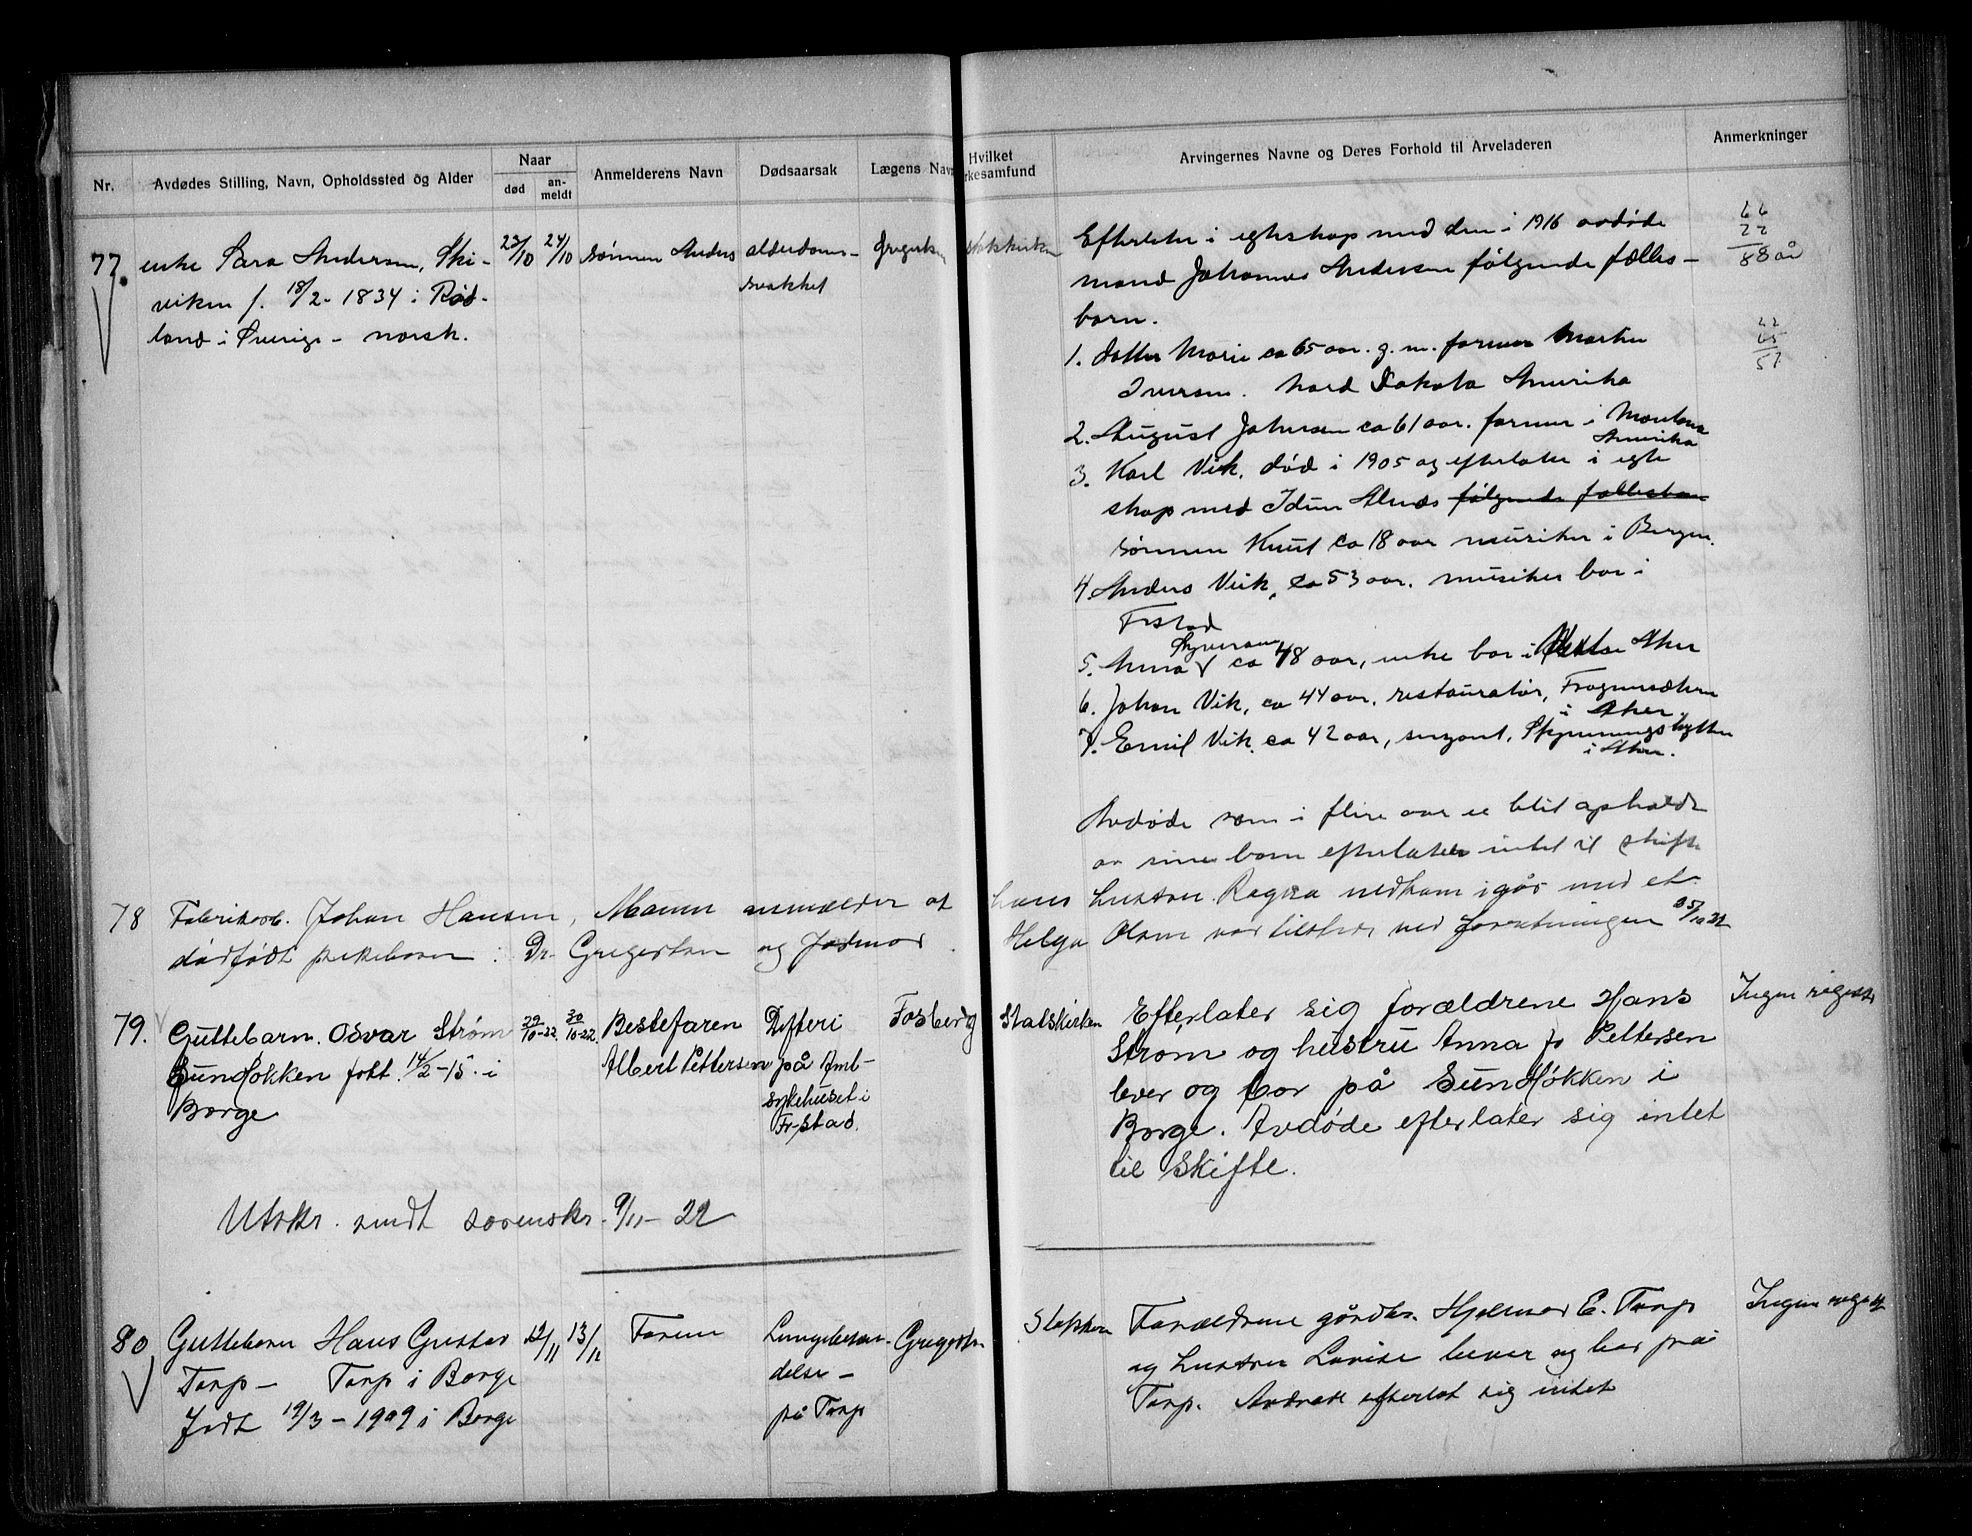 Nr.
Avdødes Stilling, Navn, Opholdssted og Alder
Naar
død
an-
meldt
Anmelderens Navn
Dødsaarsak
Lægens Navn
Hvilket
rkesamfund
Arvingernes Navne og Deres Forhold til Arveladeren
Anmerkninger
77.
enke Sara Andersen, Ski-
viken f. 18/2 - 1834 i Rød-
land i Sverige - norsk.
23/10
24/10
sønnen Anders
alderdoms-
svakhet
Gregertsen
statskirken
Efterlater i egteskap med den i 1916 avdøde
mand Johannes Andersen følgende fælles-
barn.
1. datter Marie ca 65 aar. g. m. farmer Martin
Iversen. Nord Dakota Amerika
2. August Johnsen ca 61 aar. farmer i Montana
Amerika
3. Karl Vik. død i 1905 og efterlater i egte
skap med Idun Alnæs følgende fællesbarn
sønnen Knut ca 18 aar musiker i Bergen.
4. Anders Viik, ca 53 aar. musiker bor i
Frstad
5. Anna Syversen ca 48 aar, enke bor i Vestre Aker
6. Johan Vik, ca 44 aar, restauratør, Frognersæteren
i Aker.
7. Emil Vik. ca 42 aar, sergant,
i Aker.
66
22
88 år
22
65
57
Avdøde som i flere aar er blit opholdt
av sine barn efterlater intet til skifte
78
Fabrikarb. Johan Hansen, Mannen anmelder at hans hustru Ragna nedkom igår med et
dødfødt pikebarn : Dr. Gregertsen og Jordmor Helga Olsen var tilstede ved forretningen 25/10 22
79.
Guttebarn. Osvar Strøm
Sundløkken født 14/2 - 15 i
Borge
29/10-22.
30/10-22.
Bestefaren
Albert Pettersen
Difteri
på Amt-
sykehuset i
Fr-stad.
Fosberg
Statskirken
Efterlater sig forældrene Hans
Strøm og hustru Anna f. Pettersen
lever og bor på Sundløkken i
Borge. Avdøde efterlater sig intet
til skifte.
Ingen registr
Utskr. sendt sorenskr. 9/11 - 22
80
Guttebarn Hans Gustav
Torp - Torp i Borge
født 19/3 - 1909 i Borge
12/11
13/11
Faren
Lungebetæn-
delse -
på Torp
Gregertsen
Statskirken
Forældrene gårdbr. Hjalmar E. Torp
og hustru Lovise lever og bor på
Torp. Avdøde efterlot sig intet
Ingen registr